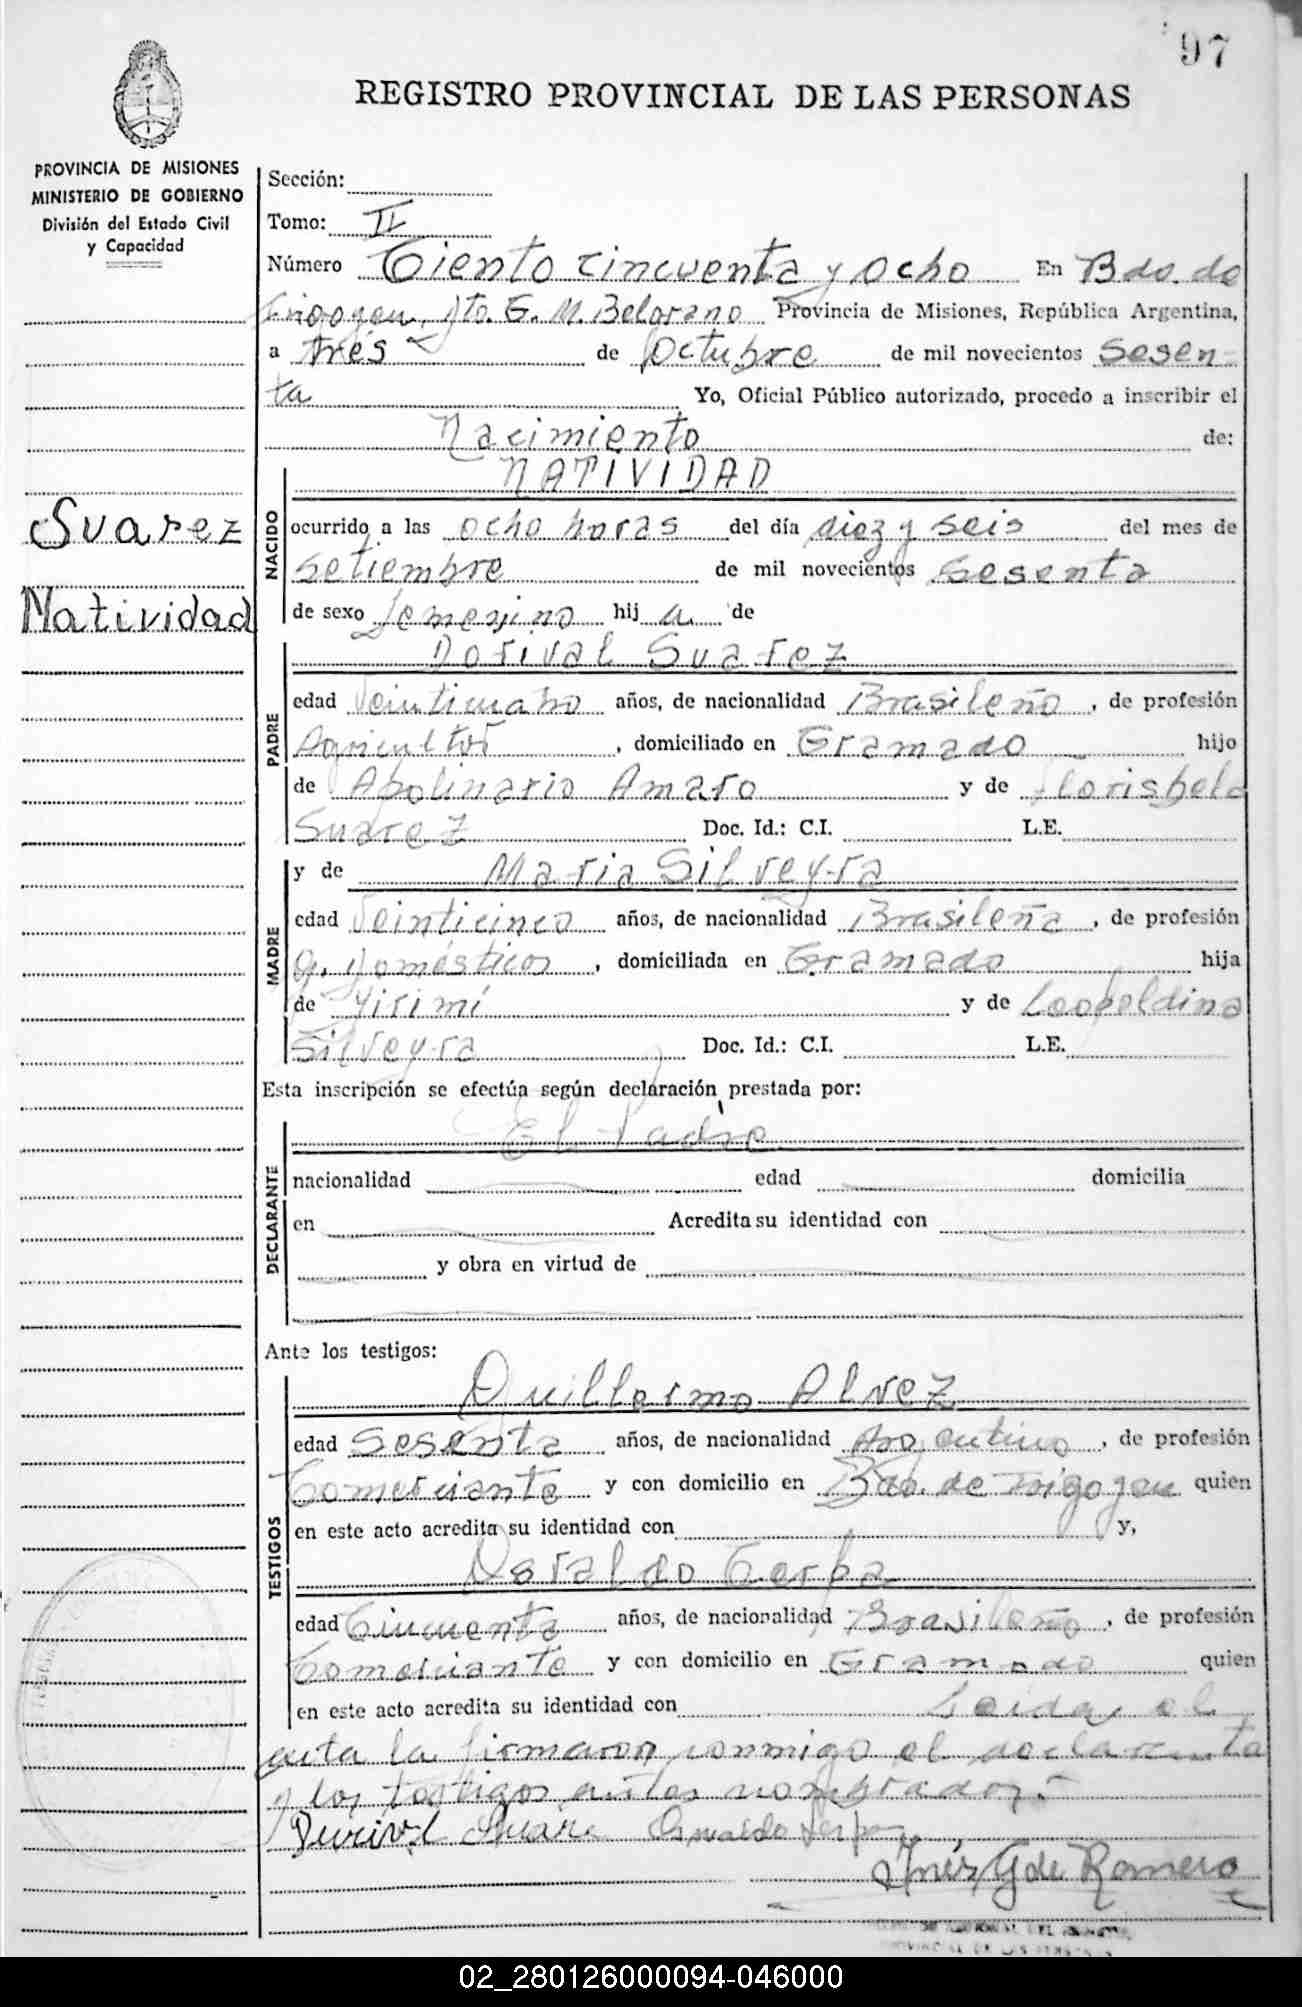 97
REGISTRO PROVINCIAL DE LAS PERSONAS
PROVINCIA DE MISIONES
MINISTERIO DE GOBIERNO
División del Estado Civil
y Capacidad
Sección:
Tomo: II
Número Ciento cincuenta y ocho En Bdo. de
Irigoyen, Dto. G. M. Belgrano Provincia de Misiones, República Argentina,
a tres de Octubre de mil novecientos Sesen-
ta Yo, Oficial Público autorizado, procedo a inscribir el
Nacimiento de:
NATIVIDAD
Suarez
Natividad
NACIDO
ocurrido a las ocho horas del día diez y seis del mes de
Setiembre de mil novecientos Sesenta
de sexo femenino hij a de
Dorival Suarez
PADRE
edad años, de nacionalidad Brasileño, de profesión
Agricultor, domiciliado en Gramado hijo
de Apolinario Amaro y de Florisbela
Suarez Doc. Id.: C.I. L.E.
y de Maria Silveyra
MADRE
edad Veinticinco años, de nacionalidad Brasileña, de profesión
q. domésticos, domiciliada en Gramado hija
de y de Leopoldina
Silveyra Doc. Id.: C.I. L.E.
Esta inscripción se efectúa según declaración prestada por:
El Padre
DECLARANTE
nacionalidad edad domicilia
en Acredita su identidad con
y obra en virtud de
Ante los testigos:
Guillermo Alvez
TESTIGOS
edad Sesenta años, de nacionalidad Argentino, de profesión
Comerciante y con domicilio en Bdo. de Irigoyen quien
en este acto acredita su identidad con y,
Osvaldo Cerpa
edad Cincuenta años, de nacionalidad Brasileño, de profesión
Comerciante y con domicilio en Gramado quien
en este acto acredita su identidad con Leida el
acta la firmaron conmigo el declarante
y los testigos antes nombrados.-
Suarez Osvaldo
Inés G de Romero
02_280126000094-046000